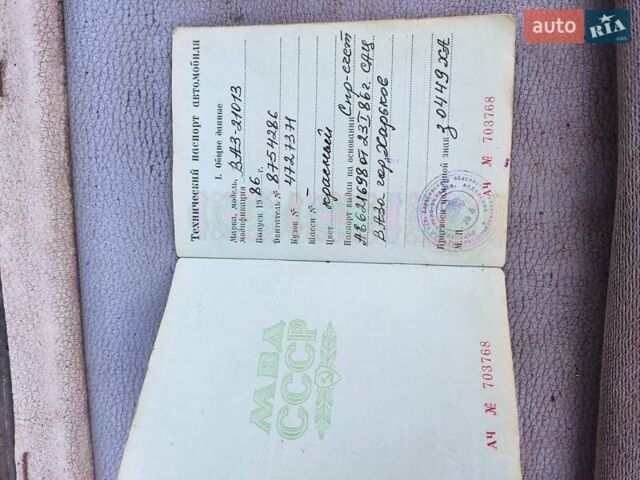 Технический паспорт автомобиля
I. Общие данные
Марка, модель, ВАЗ-21013
модификация
Выпуск 19 86 г.
Двигатель № 8754286
Кузов № 4727371
Шасси № —
Цвет красный
Паспорт выдан на основании Спр-счет
АВ 621698 от 23 I 86г. САЦ
ВАЗа гор Харьков
Присвоен номерной знак З 0449 ХА
М. П.
АЧ № 703768
МВД
СССР
АЧ № 703768
auto RIA
.com